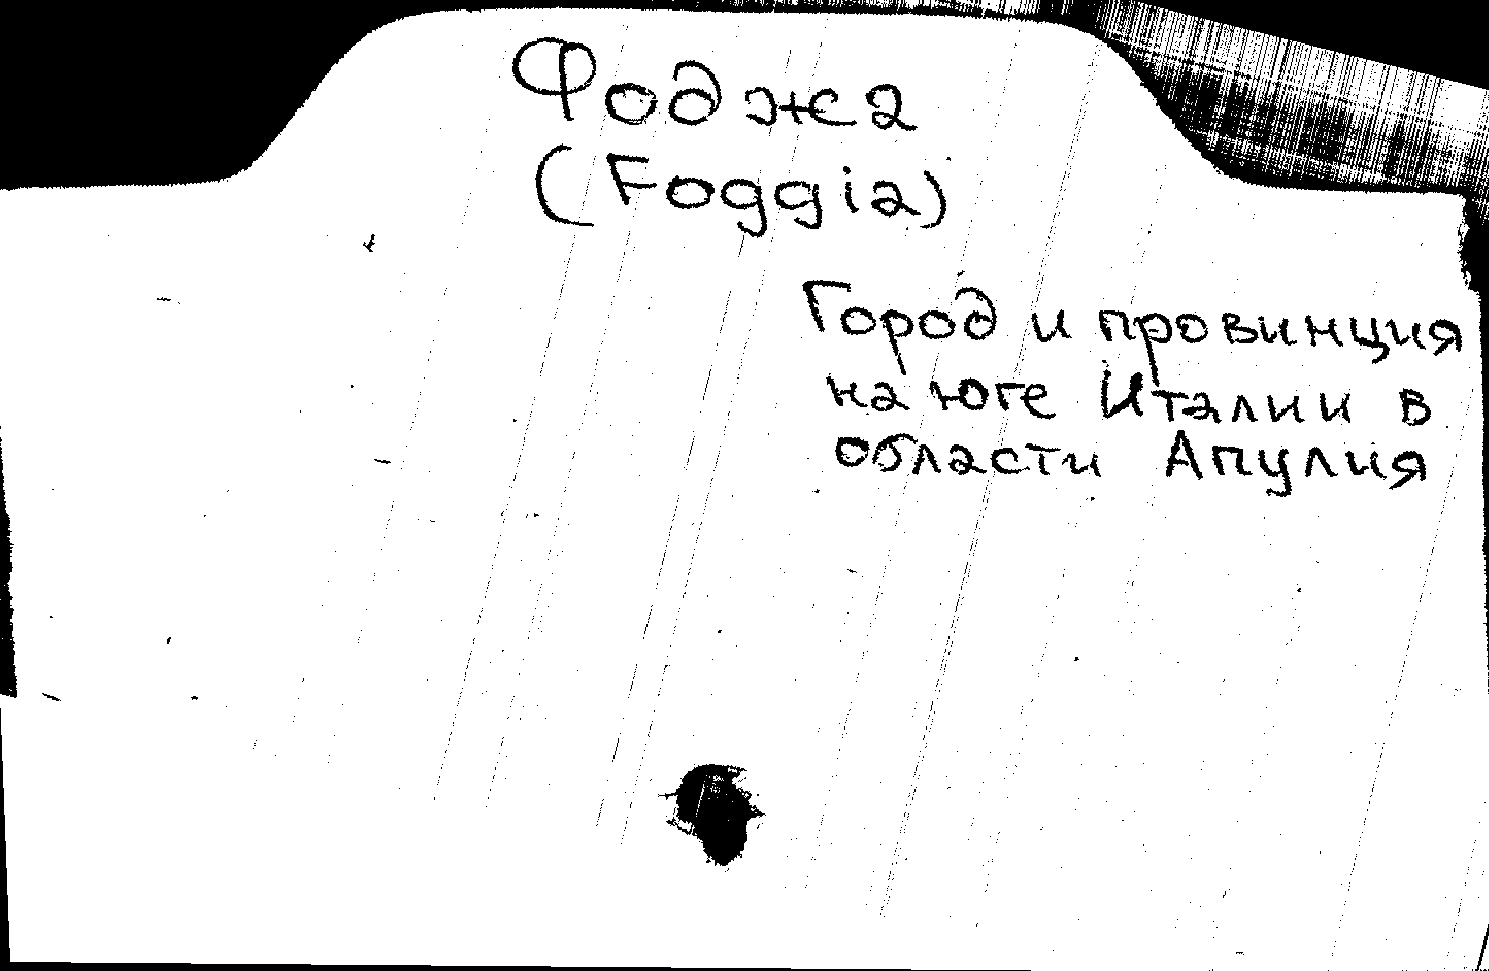 Фоджа
(Foggia)
Город и провинция
на юге Италии в
области Апулия